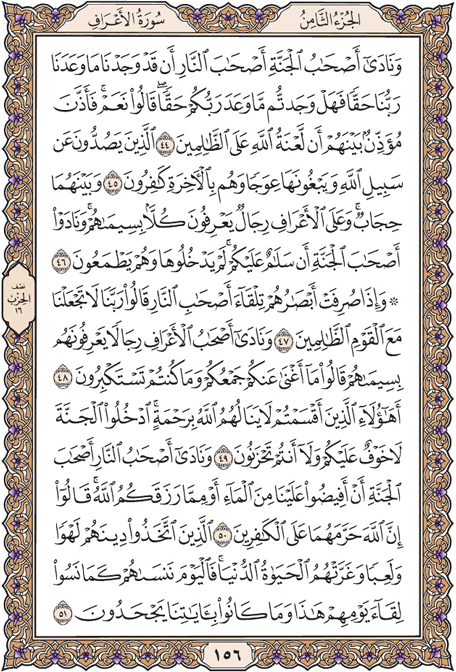 سُورَةُ الأَعْرَافِ
الجُزْءُ الثَّامِنُ
وَنَادَىٰٓ أَصْحَٰبُ الْجَنَّةِ أَصْحَٰبَ النَّارِ أَن قَدْ وَجَدْنَا مَا وَعَدَنَا
رَبُّنَا حَقًّا فَهَلْ وَجَدتُّم مَّا وَعَدَ رَبُّكُمْ حَقًّا ۖ قَالُوا۟ نَعَمْ ۚ فَأَذَّنَ
مُؤَذِّنٌۢ بَيْنَهُمْ أَن لَّعْنَةُ اللَّهِ عَلَى الظَّٰلِمِينَ ٤٤ الَّذِينَ يَصُدُّونَ عَن
سَبِيلِ اللَّهِ وَيَبْغُونَهَا عِوَجًا وَهُم بِالْءَاخِرَةِ كَٰفِرُونَ ٤٥ وَبَيْنَهُمَا
حِجَابٌ ۚ وَعَلَى الْأَعْرَافِ رِجَالٌ يَعْرِفُونَ كُلًّۢا بِسِيمَىٰهُمْ ۚ وَنَادَوْا۟
أَصْحَٰبَ الْجَنَّةِ أَن سَلَٰمٌ عَلَيْكُمْ ۚ لَمْ يَدْخُلُوهَا وَهُمْ يَطْمَعُونَ ٤٦
۞ وَإِذَا صُرِفَتْ أَبْصَٰرُهُمْ تِلْقَآءَ أَصْحَٰبِ النَّارِ قَالُوا۟ رَبَّنَا لَا تَجْعَلْنَا
مَعَ الْقَوْمِ الظَّٰلِمِينَ ٤٧ وَنَادَىٰٓ أَصْحَٰبُ الْأَعْرَافِ رِجَالًا يَعْرِفُونَهُم
بِسِيمَىٰهُمْ قَالُوا۟ مَآ أَغْنَىٰ عَنكُمْ جَمْعُكُمْ وَمَا كُنتُمْ تَسْتَكْبِرُونَ ٤٨
أَهَٰٓؤُلَآءِ الَّذِينَ أَقْسَمْتُمْ لَا يَنَالُهُمُ اللَّهُ بِرَحْمَةٍ ۚ ادْخُلُوا۟ الْجَنَّةَ
لَا خَوْفٌ عَلَيْكُمْ وَلَآ أَنتُمْ تَحْزَنُونَ ٤٩ وَنَادَىٰٓ أَصْحَٰبُ النَّارِ أَصْحَٰبَ
الْجَنَّةِ أَنْ أَفِيضُوا۟ عَلَيْنَا مِنَ الْمَآءِ أَوْ مِمَّا رَزَقَكُمُ اللَّهُ ۚ قَالُوٓا۟
إِنَّ اللَّهَ حَرَّمَهُمَا عَلَى الْكَٰفِرِينَ ٥٠ الَّذِينَ اتَّخَذُوا۟ دِينَهُمْ لَهْوًا
وَلَعِبًا وَغَرَّتْهُمُ الْحَيَوٰةُ الدُّنْيَا ۚ فَالْيَوْمَ نَنسَىٰهُمْ كَمَا نَسُوا۟
لِقَآءَ يَوْمِهِمْ هَٰذَا وَمَا كَانُوا۟ بِـَٔايَٰتِنَا يَجْحَدُونَ ٥١
نصف
الحزب
١٦
١٥٦